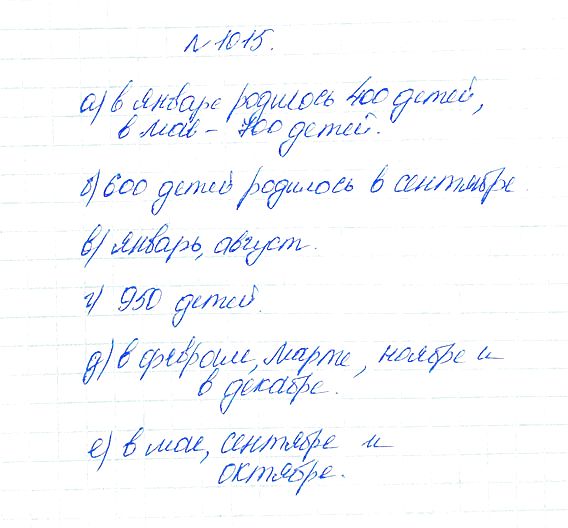 № 1015.
а) в январе родилось 400 детей,
в мае – 700 детей.
б) 600 детей родилось в сентябре
в) январь, август.
г) 950 детей.
д) в феврале, марте, ноябре и
в декабре.
е) в мае, сентябре и
октябре.